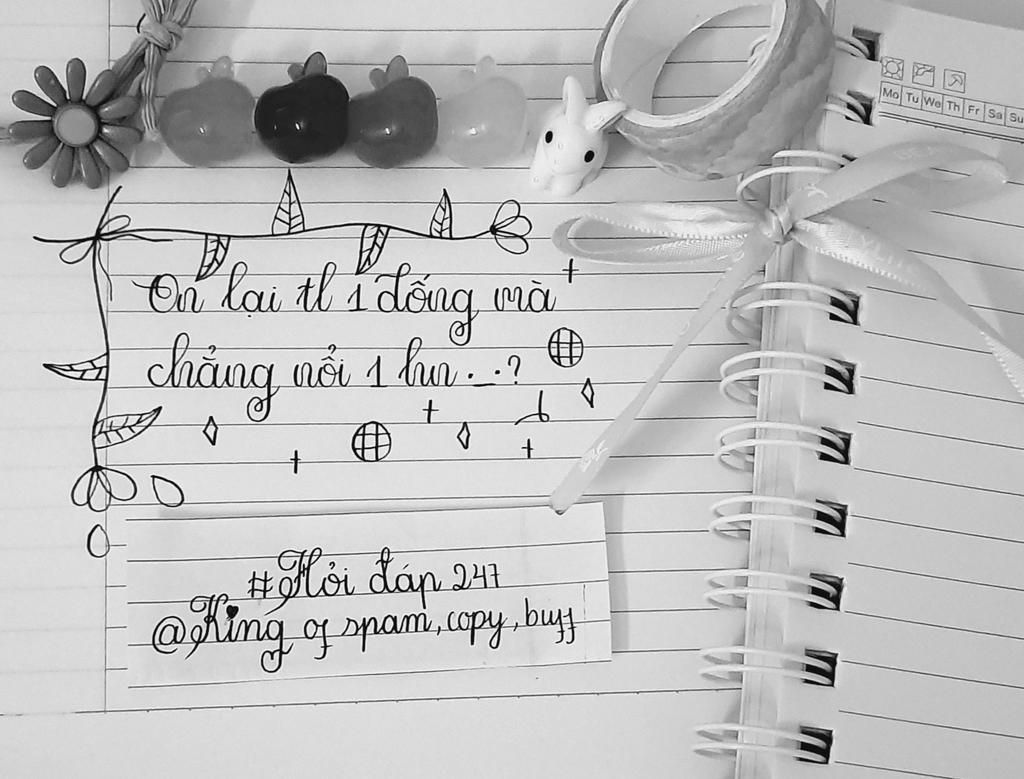 Mo Tu We Th Fr Sa Su
On lại tl 1 đống mà
chẳng nổi 1 hn ._.?
#Hỏi đáp 247
@King of spam, copy, buff